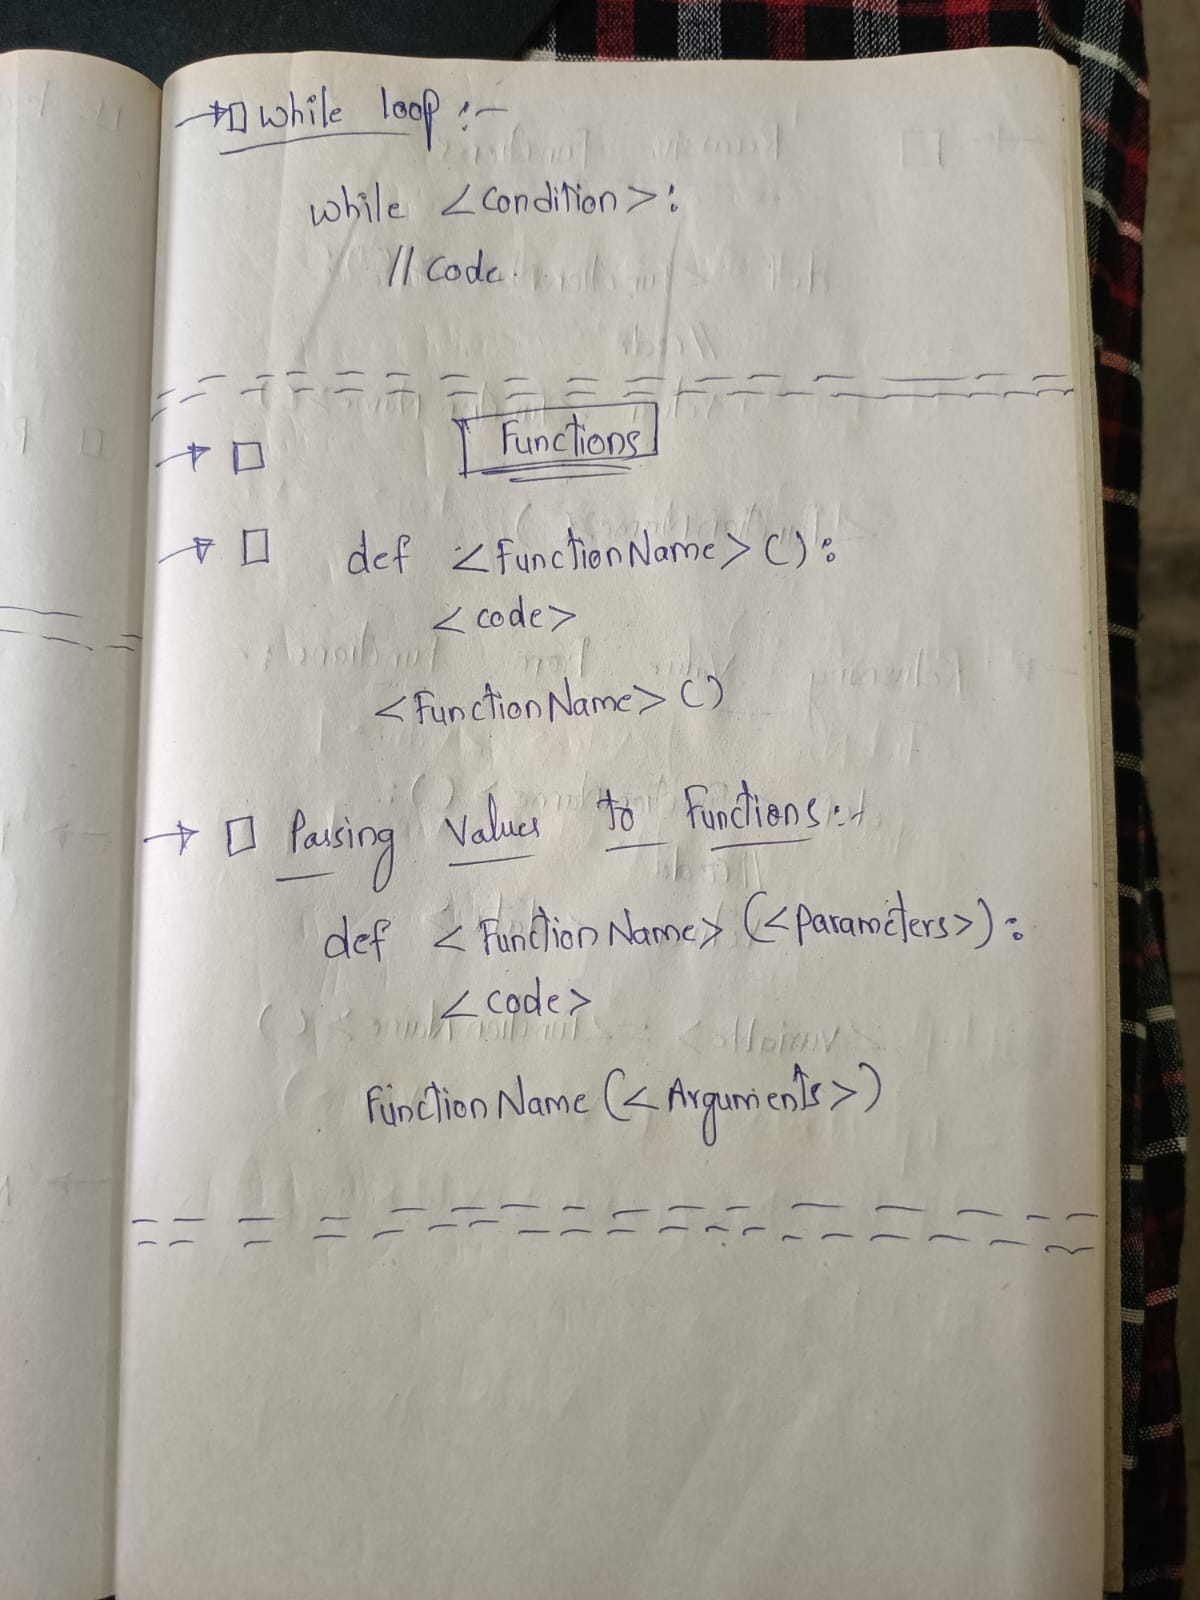 → □ While loop :-
while <Condition>:
// Code.
→ □ Functions
→ □ def <FunctionName>():
<code>
<FunctionName>()
→ □ Passing Values to Functions:-
def <FunctionName>(<Parameters>):
<code>
FunctionName(<Arguments>)